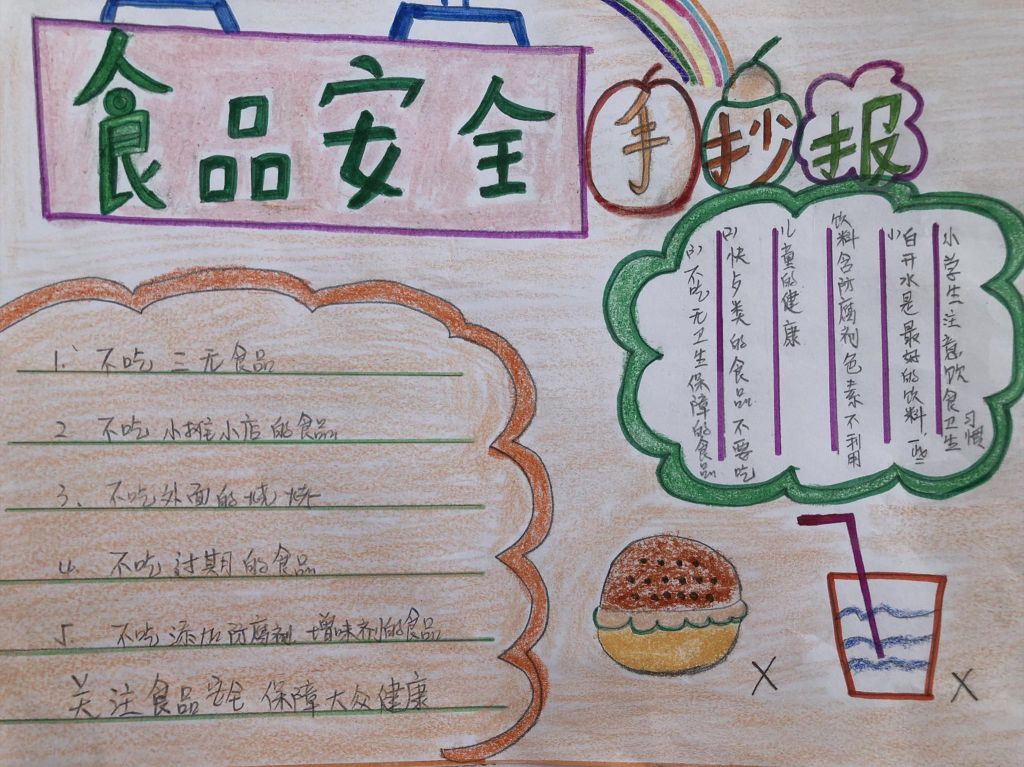 食品安全手抄报
1. 不吃三无食品
2 不吃小摊小店的食品
3、不吃外面的烧烤
4. 不吃过期的食品
5. 不吃添加防腐剂增味剂的食品
关注食品安全保障大众健康
小学生注意饮食卫生习惯
(1)白开水是最好的饮料,一些
饮料含防腐剂色素不利用
儿童的健康
(2)快歺类的食品不要吃
(3)不吃无卫生保障的食品
X
X